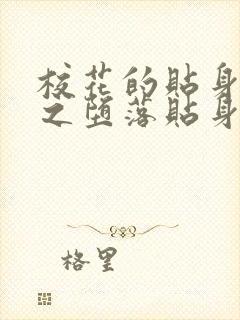 校花的貼身
之堕落貼身
格里